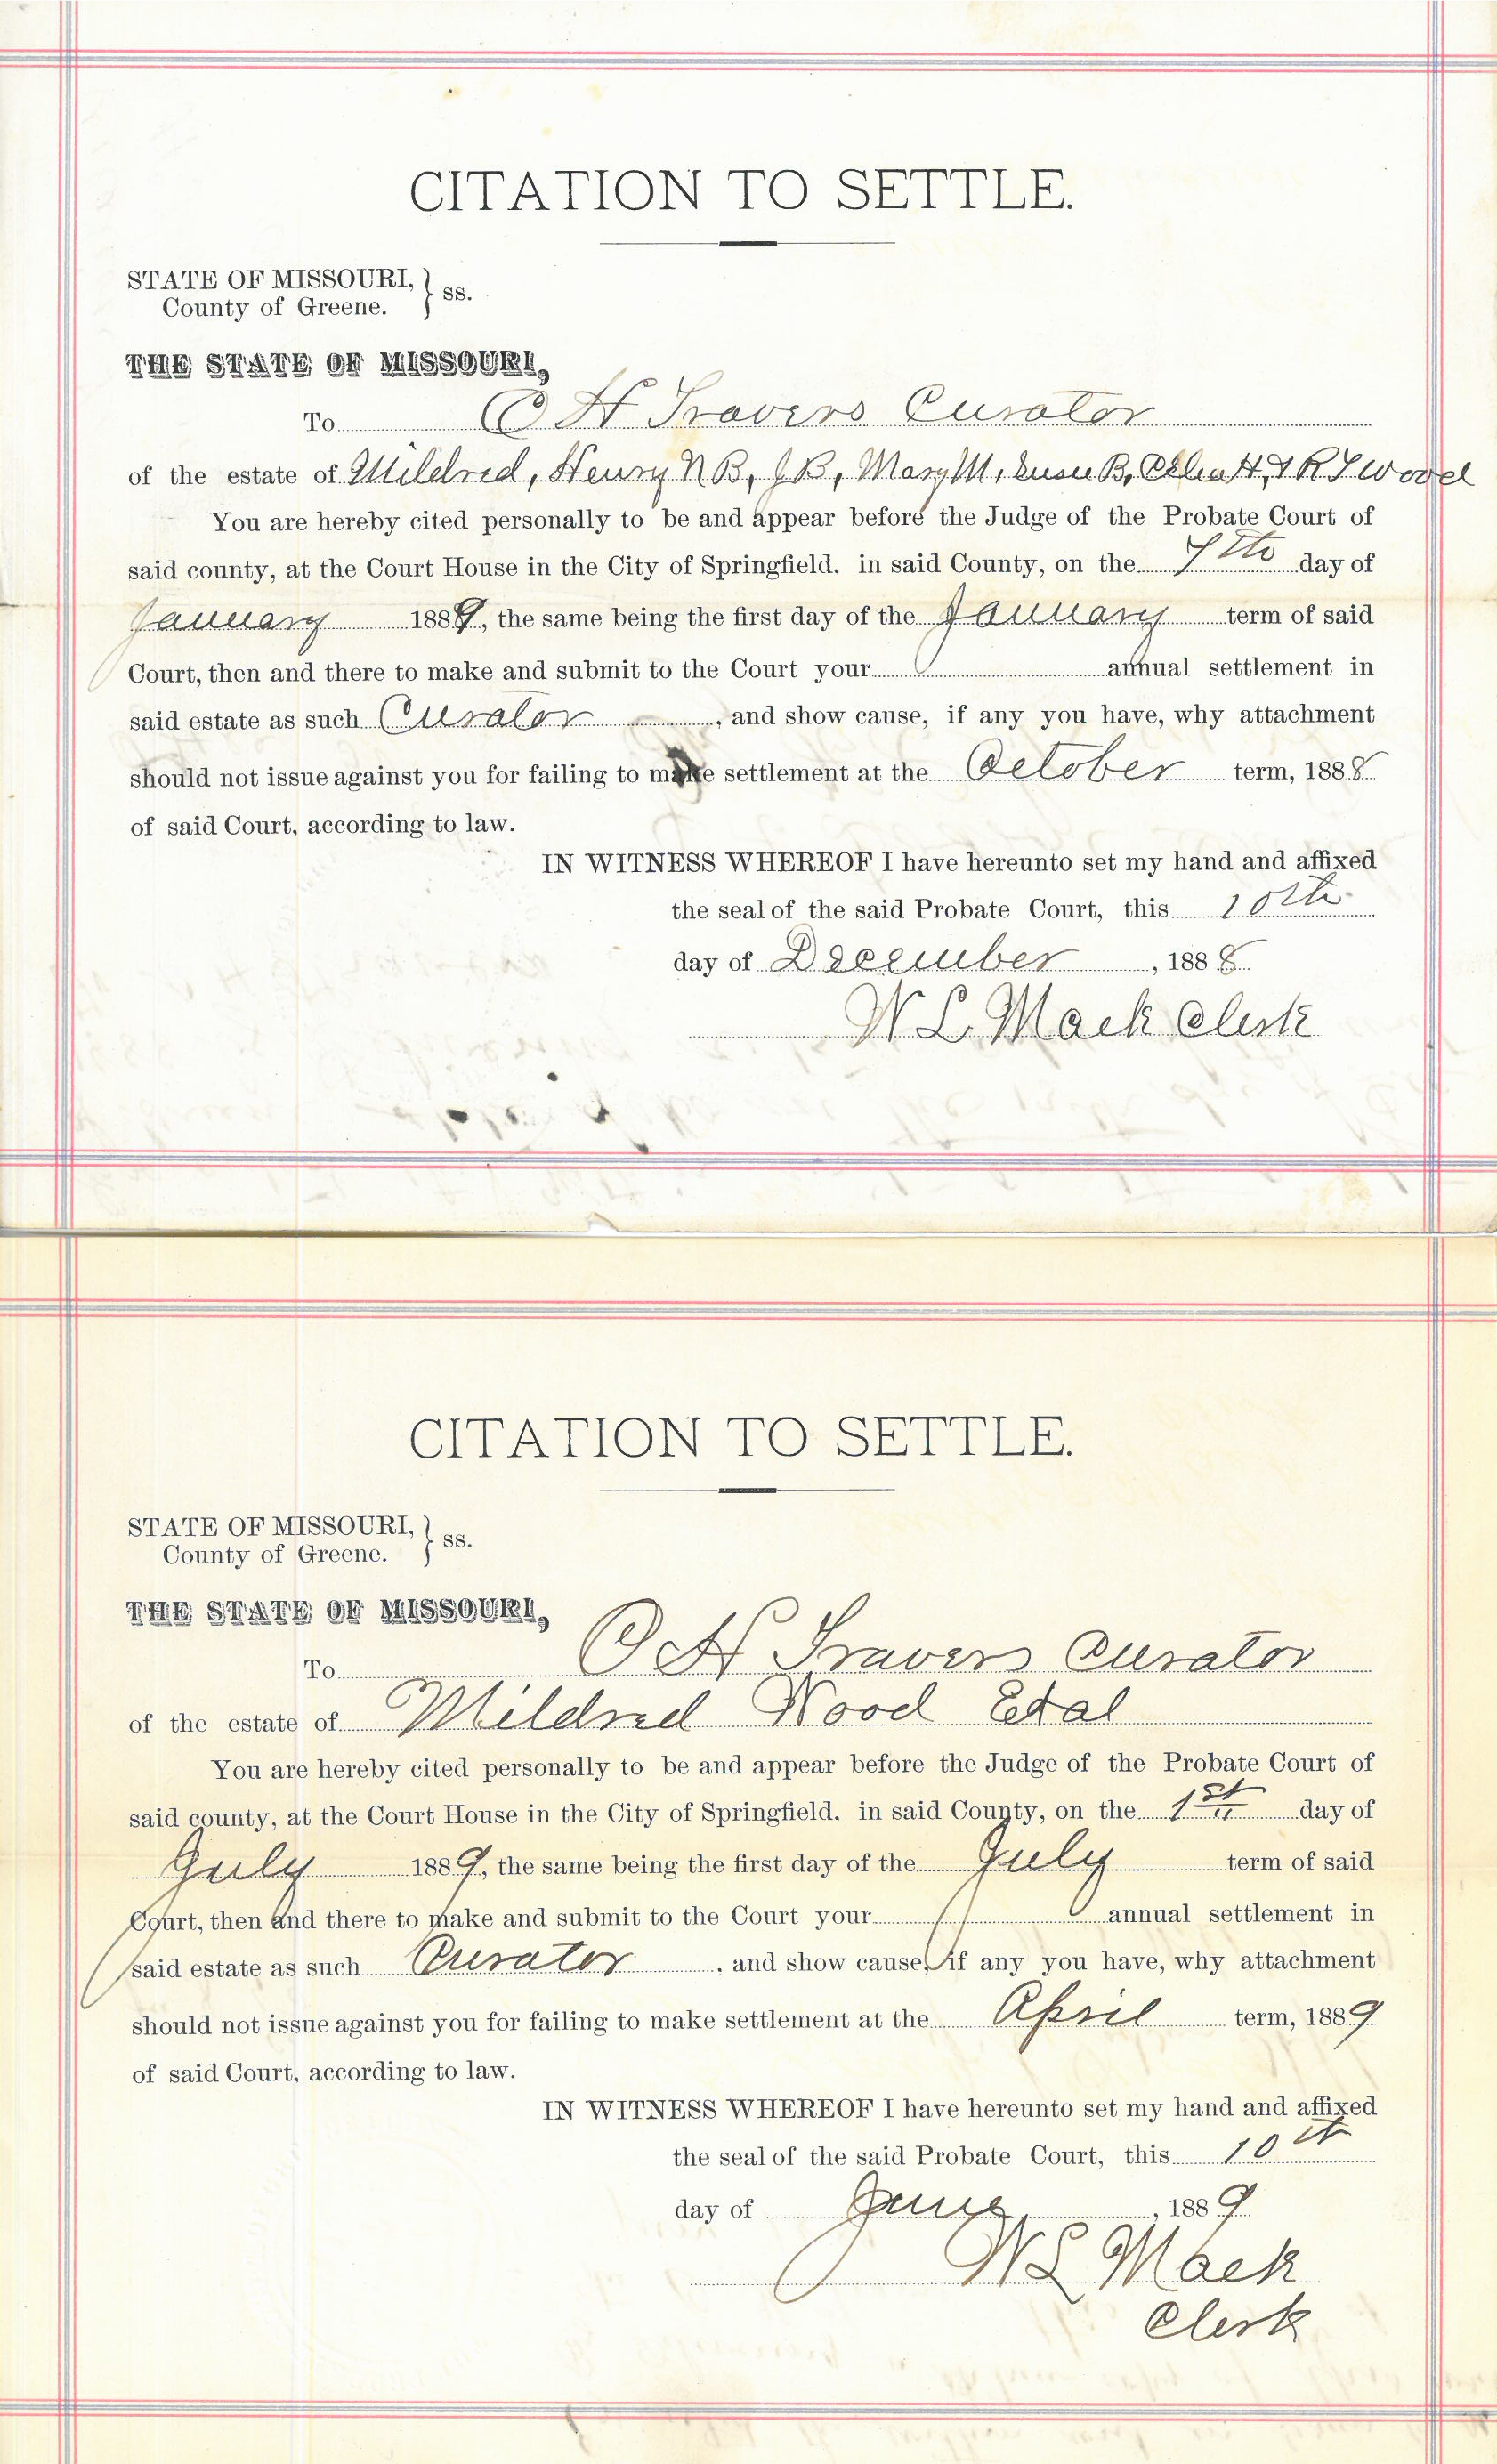 CITATION TO SETTLE.
STATE OF MISSOURI, } ss.
County of Greene.
THE STATE OF MISSOURI,
To O H Travers Curator
of the estate of Mildred, Henry N B, J B, Mary M, Susie B, H, & R T Wood
You are hereby cited personally to be and appear before the Judge of the Probate Court of
said county, at the Court House in the City of Springfield, in said County, on the 7th day of
January 1889, the same being the first day of the January term of said
Court, then and there to make and submit to the Court your annual settlement in
said estate as such Curator, and show cause, if any you have, why attachment
should not issue against you for failing to make settlement at the October term, 1888
of said Court, according to law.
IN WITNESS WHEREOF I have hereunto set my hand and affixed
the seal of the said Probate Court, this 10th
day of December, 1888
W L Mack Clerk
CITATION TO SETTLE.
STATE OF MISSOURI, } ss.
County of Greene.
THE STATE OF MISSOURI,
To O H Travers Curator
of the estate of Mildred Wood Etal
You are hereby cited personally to be and appear before the Judge of the Probate Court of
said county, at the Court House in the City of Springfield, in said County, on the 1st day of
July 1889, the same being the first day of the July term of said
Court, then and there to make and submit to the Court your annual settlement in
said estate as such Curator, and show cause, if any you have, why attachment
should not issue against you for failing to make settlement at the April term, 1889
of said Court, according to law.
IN WITNESS WHEREOF I have hereunto set my hand and affixed
the seal of the said Probate Court, this 10th
day of June, 1889
W L Mack
Clerk